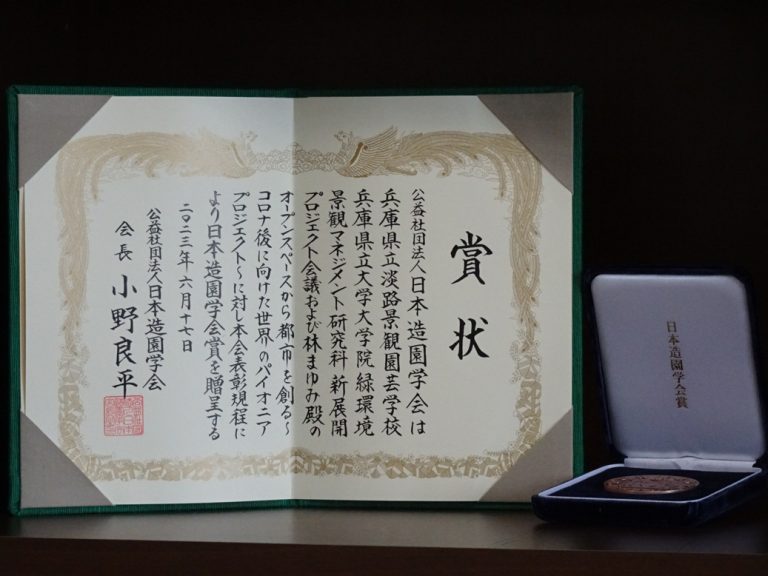 賞状
公益社団法人日本造園学会は
兵庫県立淡路景観園芸学校
兵庫県立大学大学院緑環境
景観マネジメント研究科 新展開
プロジェクト会議および林まゆみ殿の
オープンスペースから都市を創る～
コロナ後に向けた世界のパイオニア
プロジェクト～に対し本会表彰規程に
より日本造園学会賞を贈呈する
二〇二三年六月十七日
公益社団法人日本造園学会
会長 小野良平
日本造園学会賞